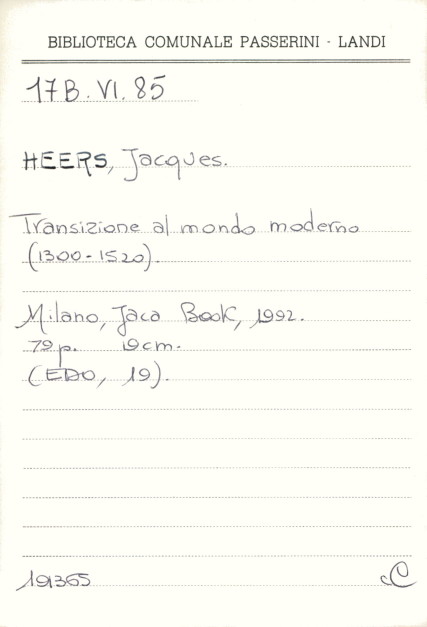 BIBLIOTECA COMUNALE PASSERINI - LANDI
17B. VI. 85
HEERS, Jacques.
Transizione al mondo moderno
(1300-1520).
Milano, Jaca Book, 1992.
79 p. 19cm.
(EDO, 19).
191365 cC